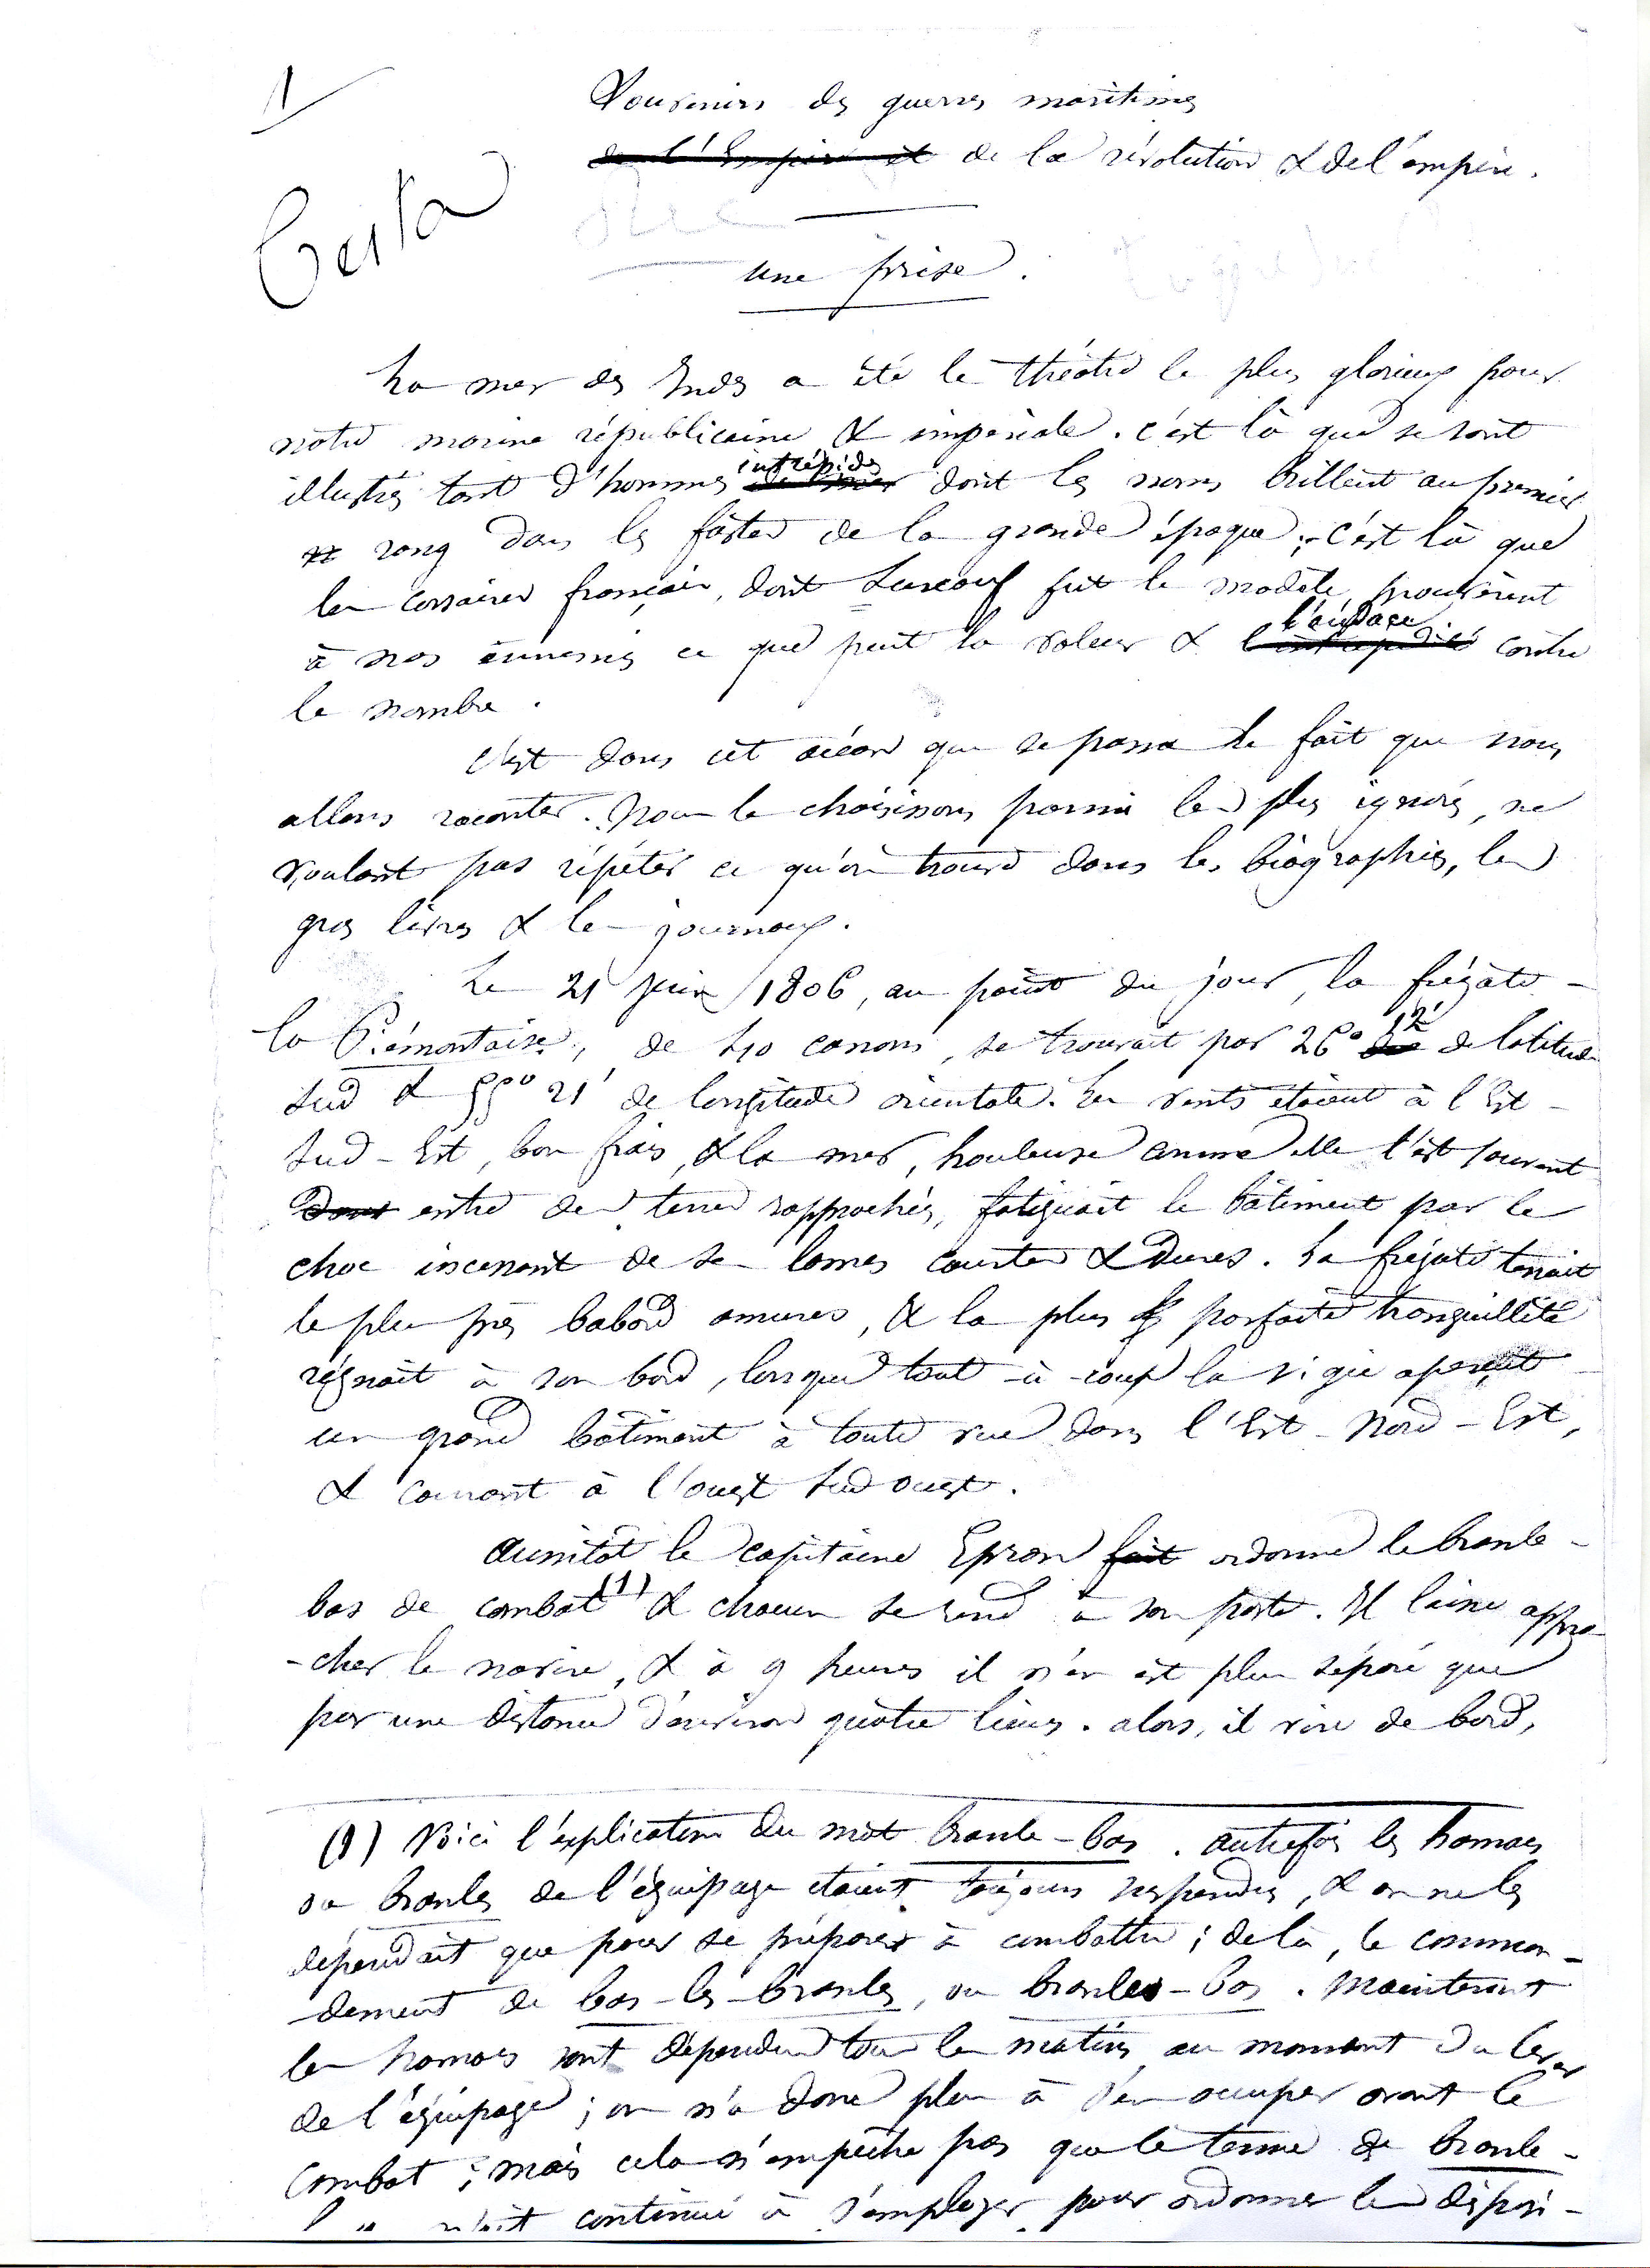 1
Souvenirs des guerres maritimes
de l'Empire et de la révolution & de l'empire.
une prise.
La mer des Indes a été le théâtre le plus glorieux pour
notre marine républicaine & impériale. C'est là que se sont
illustrés tant d'hommes intrépides dont les noms brillent au premier
rang dans les fastes de la grande époque; c'est là que
les corsaires français, dont Surcouf fut le modèle, prouvèrent
à nos ennemis ce que peut la valeur & l'audace contre
le nombre.
C'est dans cet océan que se passa le fait que nous
allons raconter. Nous le choisissons parmi les plus ignorés, ne
voulant pas répéter ce qu'on trouve dans les biographies, les
gros livres & les journaux.
Le 21 juin 1806, au point du jour, la frégate
la Piémontaise, de 40 canons, se trouvait par 26° 12' de latitude
sud & 55° 21' de longitude orientale. Les vents étaient à l'Est-
Sud-Est, bon frais, & la mer, houleuse comme elle l'est souvent
entre des terres rapprochées, fatiguait le bâtiment par le
choc incessant de ses lames courtes & dures. La frégate tenait
le plus près babord amures, & la plus parfaite tranquillité
régnait à son bord, lorsque tout-à-coup la vigie aperçut
un grand bâtiment à toute vue dans l'Est-Nord-Est,
& courant à l'ouest sud ouest.
Aussitôt le capitaine Epron fait ordonne le branle-
bas de combat (1) & chacun se rend à son poste. Il laisse appro-
-cher le navire, & à 9 heures il n'en est plus séparé que
par une distance d'environ quatre lieues. alors, il vire de bord,
(1) Voici l'explication du mot branle-bas. autrefois les hamacs
ou branles de l'équipage étaient toujours suspendus, & on ne les
dépendait que pour se préparer à combattre; de là, le comman-
-dement de bas-les-branles, ou branles-bas. Maintenant
les hamacs sont dépendus tous les matins au moment du lever
de l'équipage; on n'a donc plus à s'en occuper avant le
combat; mais cela n'empêche pas que le terme de branle-
continué à s'employer pour ordonner les disposi-